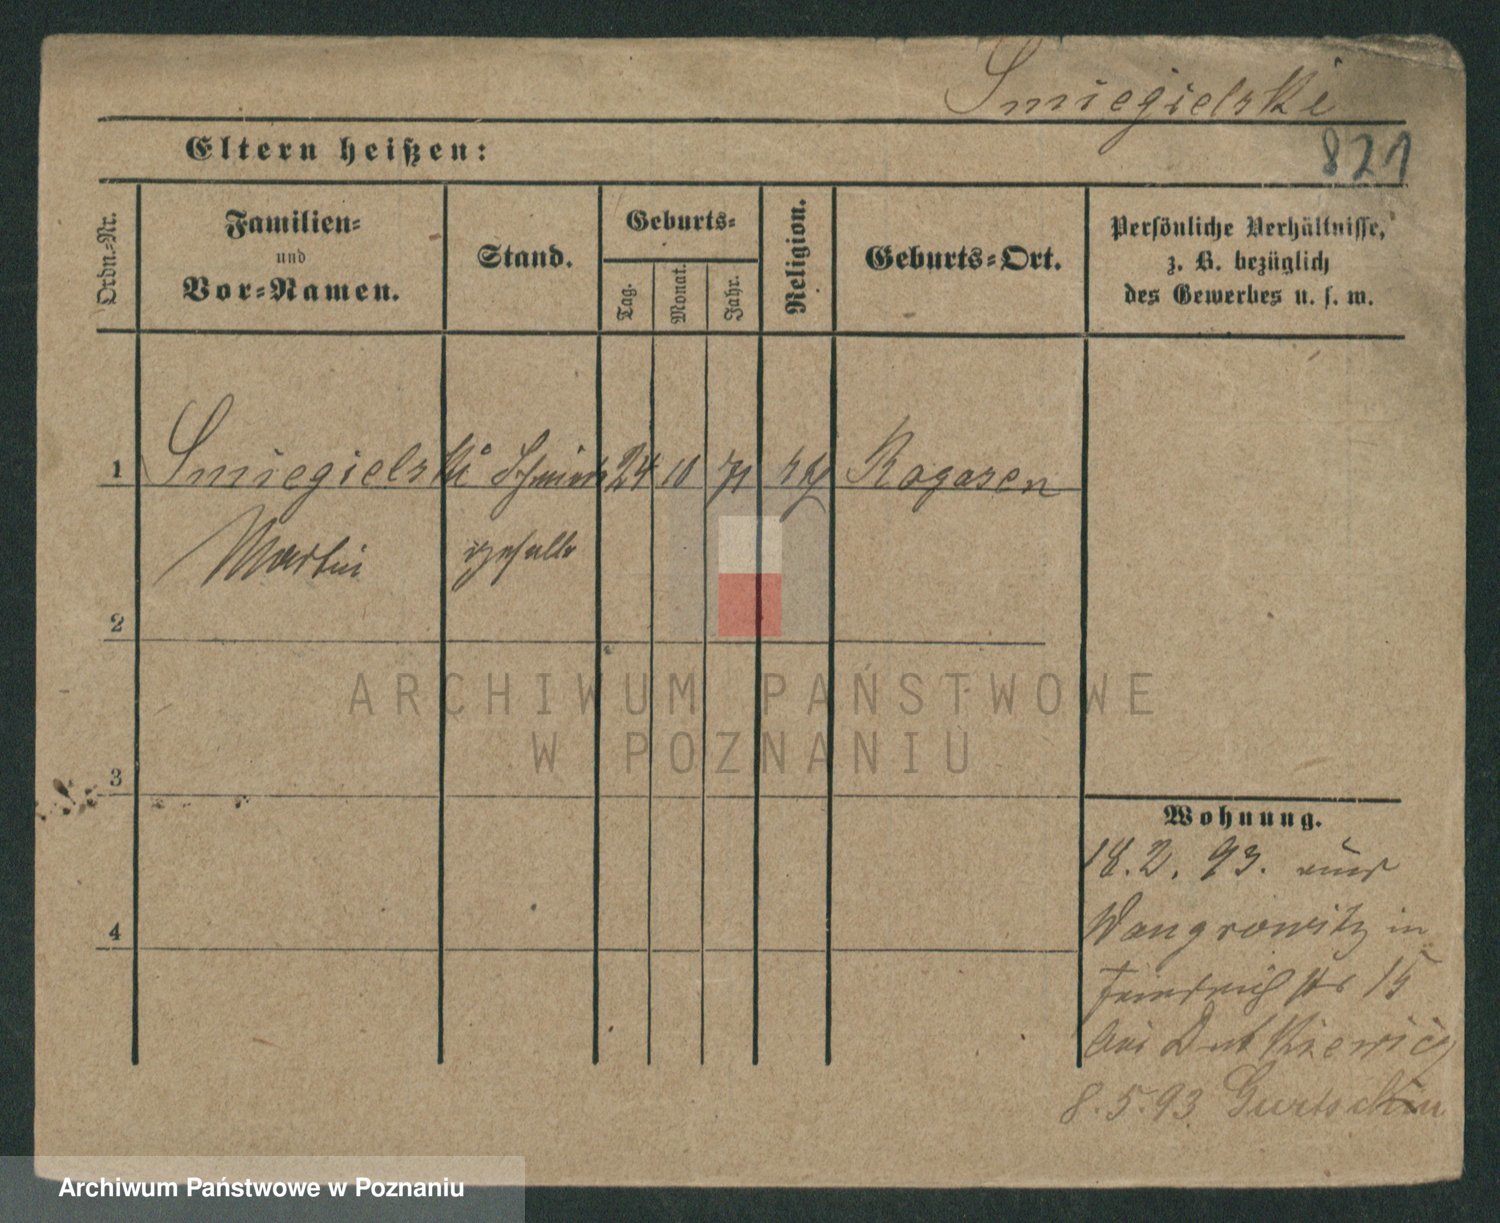 Smiegielski
Eltern heißen:
821
Ordn.-Nr.
Familien-
und
Vor-Namen.
Stand.
Geburts-
Tag.
Monat.
Jahr.
Religion.
Geburts-Ort.
Persönliche Verhältnisse,
z. B. bezüglich
des Gewerbes u. s. w.
1 Smiegielski Schmiede 24 10 71 kth Rogasen
Martin geselle
2
ARCHIWUM PAŃSTWOWE
W POZNANIU
3
Wohnung.
18.2.93. aus
Wongrowitz in
Friedrich str 15
bei Dutkiewicz
4
8.5.93 Gurtschin
Archiwum Państwowe w Poznaniu